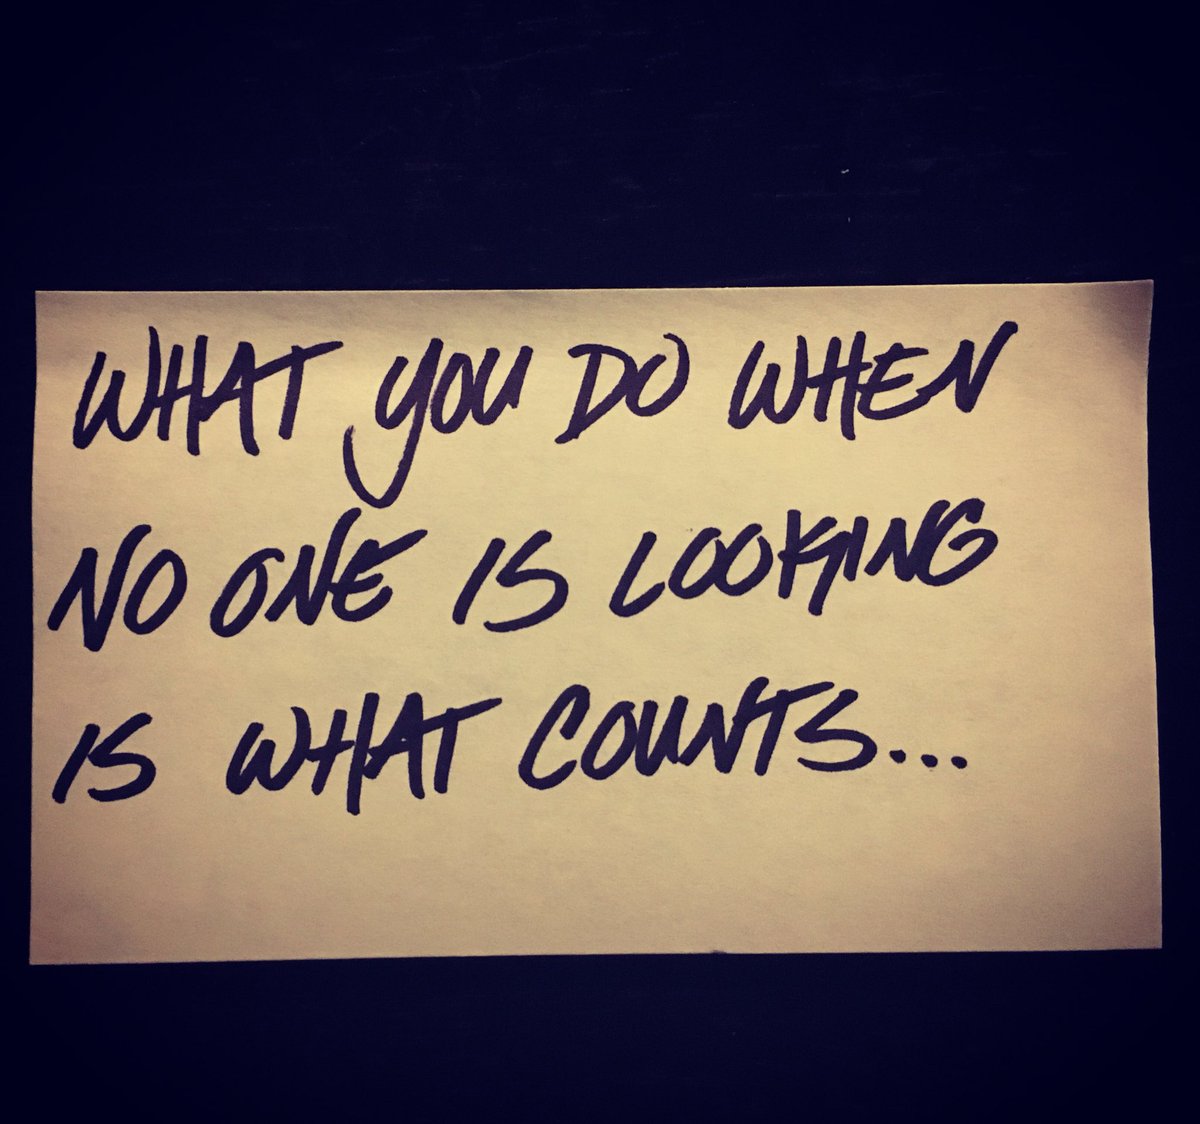 WHAT YOU DO WHEN
NO ONE IS LOOKING
IS WHAT COUNTS...